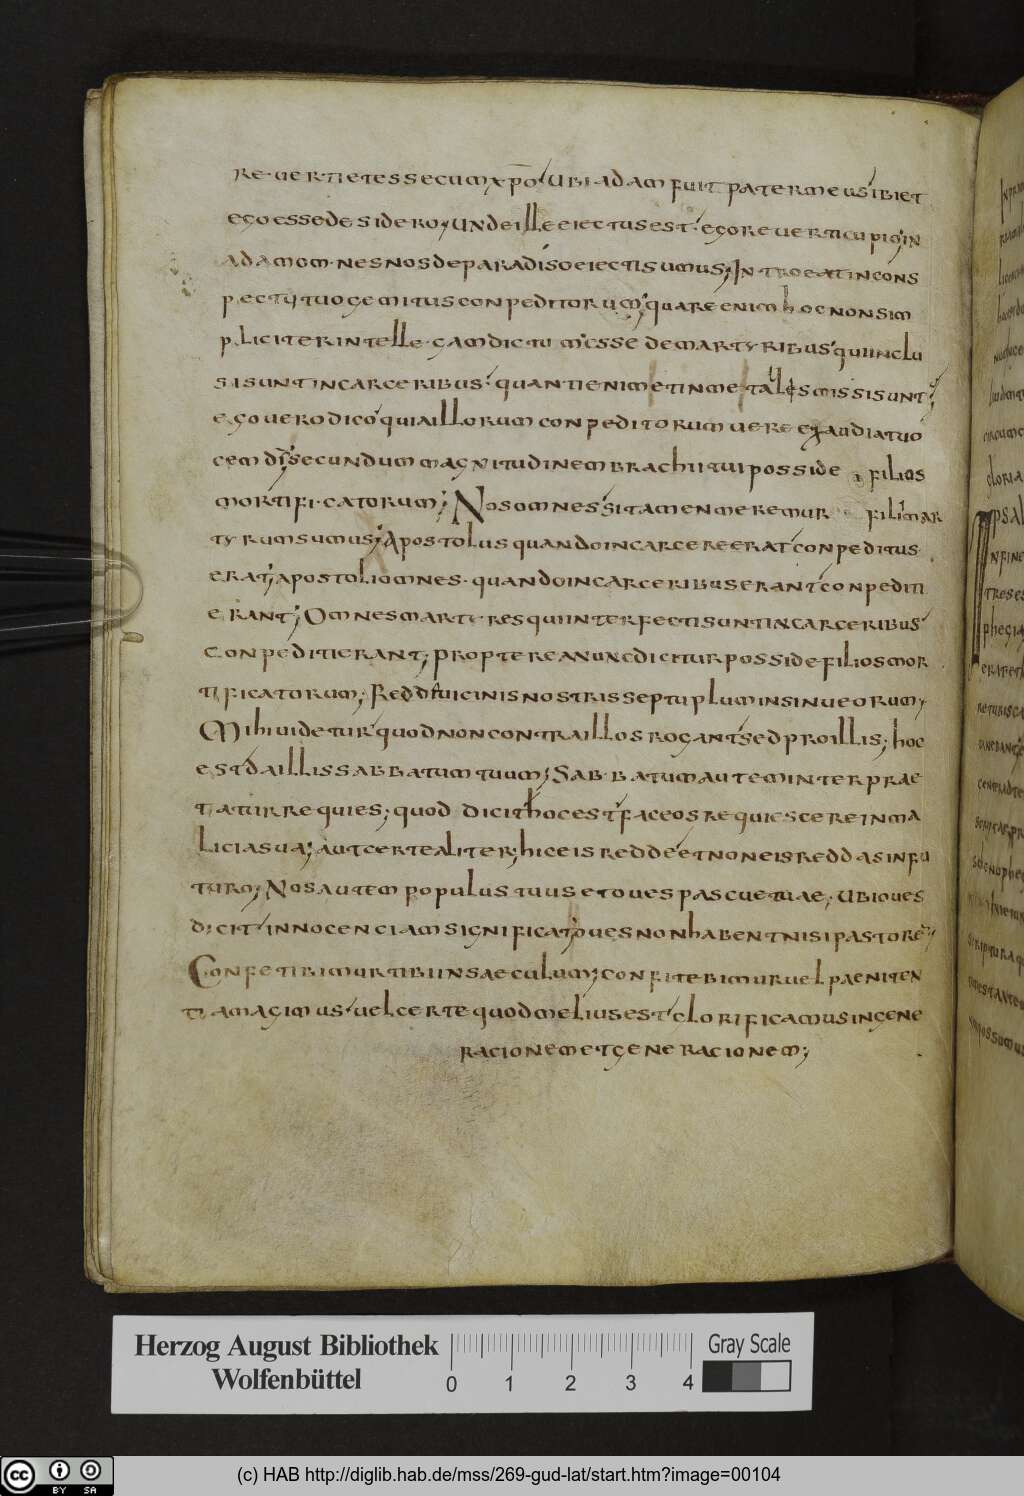 reuertietessecumxpo ubiadamfuit patermeus ibiet
egoessedesidero, undeilleeiectusest, egoreuerticupio, in
adamom nesnosdeparadisoeiectisumus; Introeatincons
pectutuogemitusconpeditorum, quareenimhocnonsim
pliciterintellegamdictum esse demartyribus quiinclu
sisuntincarceribus, quantienimetinmetallismissisunt,
egouerodico quiaillorumconpeditorumuereexaudiatuo
cemds, secundummagnitudinembrachiituiposside filios
mortificatorum; Nosomnes, sitamenmeremur filiimar
tyrumsumus; Apostolusquandoincarcereerat conpeditus
erat, apostoliomnesquandoincarceribuserant conpediti
erant; Omnesmartiresquiinterfectisuntincarceribus
conpeditierant; propterea nuncdiciturposside filiosmor
tificatorum; Reddeuicinisnostrisseptuplum insinueorum,
Mihiuidetur quodnoncontraillosrogant sedproillis; hoc
estdaillissabbatumtuum; Sabbatumauteminterprae
taturrequies; quod dicithocest faceosrequiescereinma
liciasua; autcertealiter, hiceisredde etnoneisreddasinfu
turo; Nosautem populus tuus etouespascuetuae, ubioues
dicit innocenciamsignificat, ouesnonhabentnisipastorem,
Confetibimurtibiinsaeculum; confitebimuruel paeniten
tiamagimus, uelcertequodmeliusest glorificamusingene
racionemetgeneracionem;
Herzog August Bibliothek
Wolfenbüttel
0 1 2 3 4
Gray Scale
cc BY SA
(c) HAB http://diglib.hab.de/mss/269-gud-lat/start.htm?image=00104